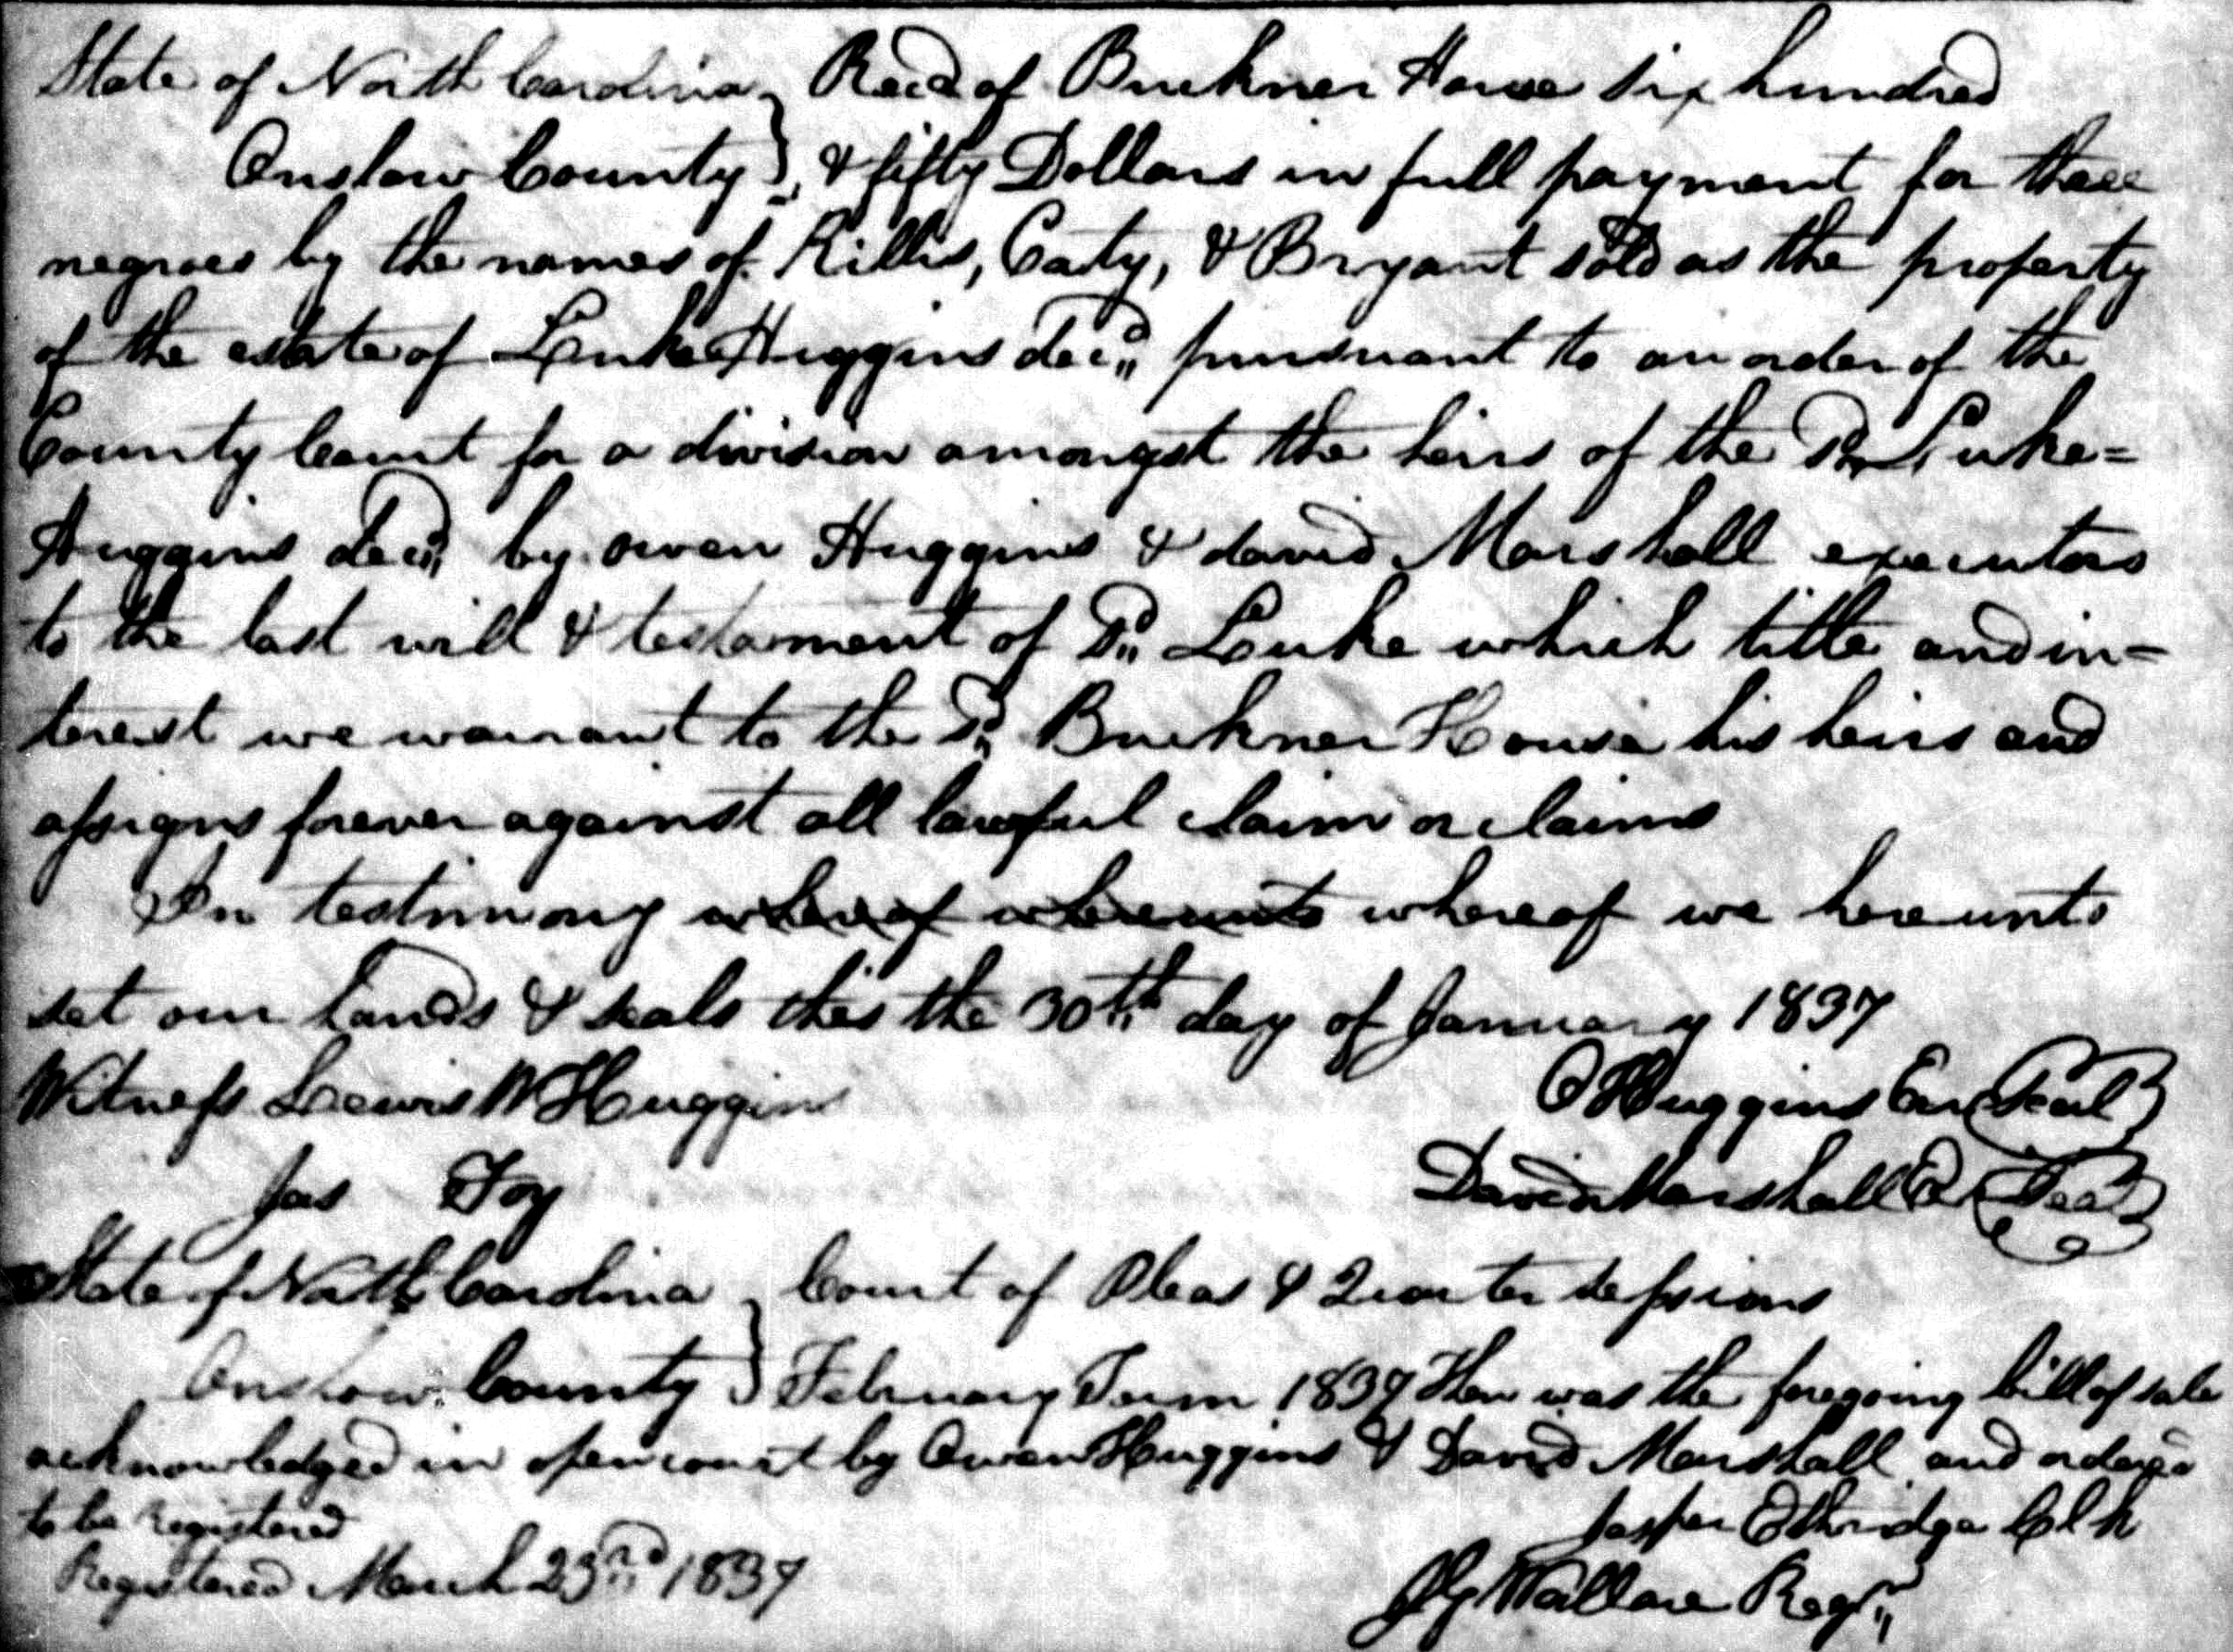 State of North Carolina } Recd of Buckner House six hundred
Onslow County } & fifty Dollars in full payment for three
negroes by the names of Killis, Caty, & Bryant sold as the property
of the estate of Luke Huggins decd, pursuant to an order of the
County Court for a division amongst the heirs of the Sd Luke=
Huggins decd by owen Huggins & david Marshall executors
to the last will & testament of Sd Luke which title and in=
terest we warrant to the Sd Buckner House his heirs and
assigns forever against all lawful claim or claims
In testimony whereof whereunto whereof we hereunto
set our hands & seals this the 30th day of January 1837
Witness Lewis W Huggins
O Huggins Exr Seal
Jas Foy
David Marshall Ex Seal
State of North Carolina } Court of Pleas & Quarter sessions
Onslow County } February Term 1837 Then was the foregoing bill of sale
acknowledged in open court by Owen Huggins & David Marshall and orderd
to be registered
Jasper Ethridge Clk
Registered March 23rd 1837
Wallace Regr